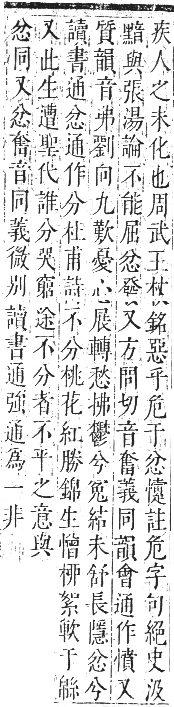 疾人之未化也周武王杖銘惡乎危于忿懥註危字句絕史汲
黯與張湯論不能屈忿發又方問切音奮義同韻會通作憤又
質韻音弗劉向九歎憂心展轉愁拂鬱兮冤結未舒長隱忿兮
讀書通忿通作分杜甫詩不分桃花紅勝錦生憎柳絮軟于緜
又此生遭聖代誰分哭窮途不分者不平之意與
忿同又忿奮音同義微別讀書通強通爲一非